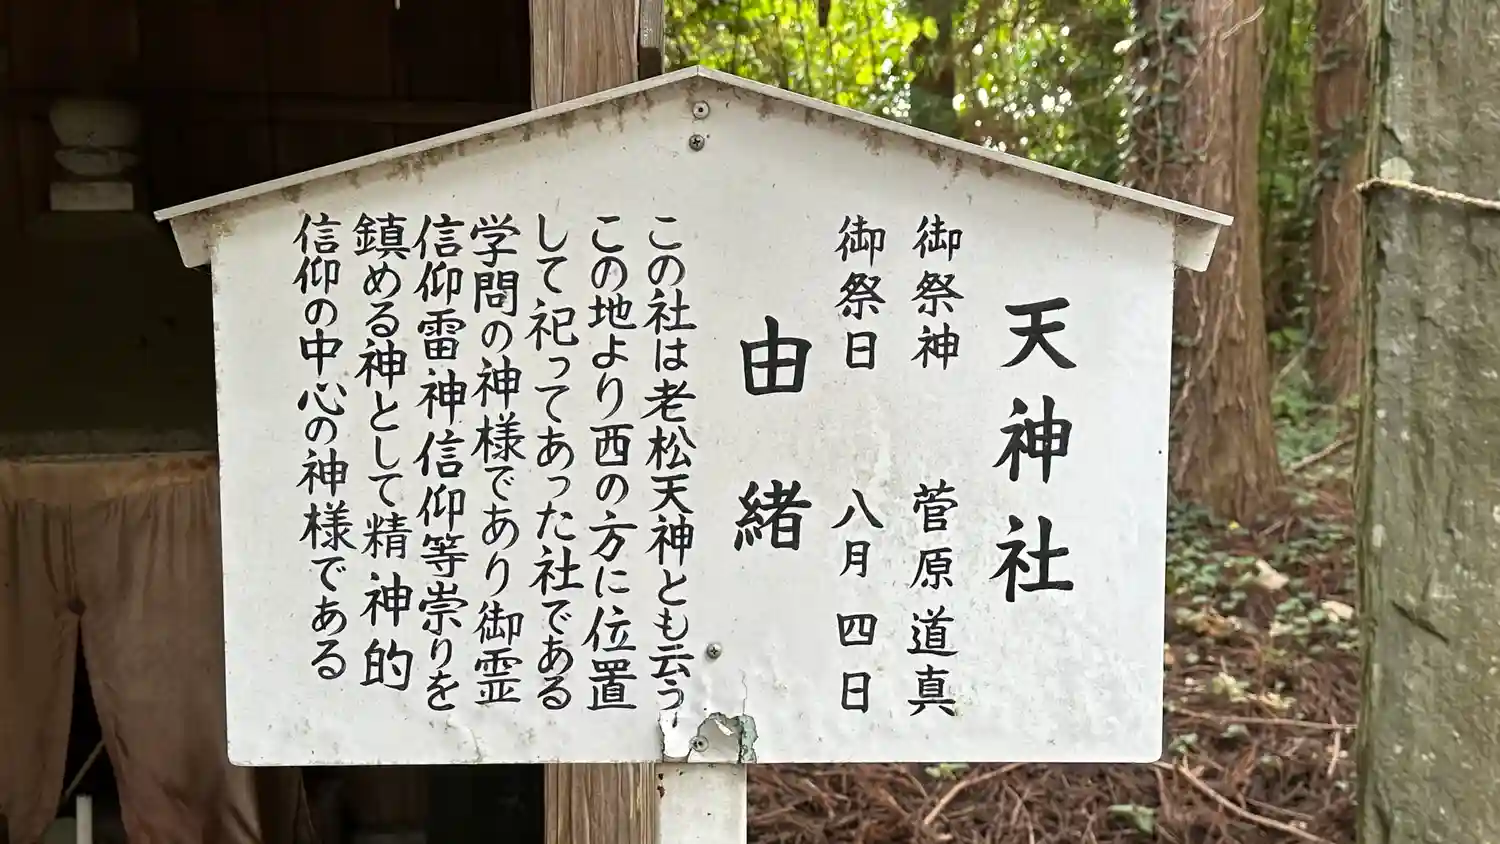 天神社
御祭神 菅原道真
御祭日 八月四日
由緒
この社は老松天神とも云う
この地より西の方に位置
して祀ってあった社である
学問の神様であり御霊
信仰雷神信仰等崇りを
鎮める神として精神的
信仰の中心の神様である